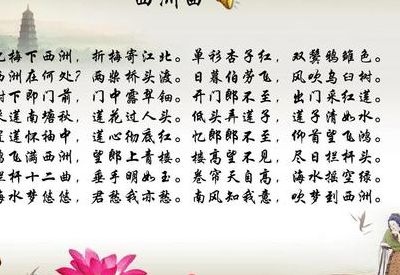 西洲曲
忆梅下西洲,折梅寄江北。单衫杏子红,双鬓鸦雏色。
西洲在何处?两桨桥头渡。日暮伯劳飞,风吹乌臼树。
树下即门前,门中露翠钿。开门郎不至,出门采红莲。
采莲南塘秋,莲花过人头。低头弄莲子,莲子清如水。
置莲怀袖中,莲心彻底红。忆郎郎不至,仰首望飞鸿。
鸿飞满西洲,望郎上青楼。楼高望不见,尽日栏杆头。
栏杆十二曲,垂手明如玉。卷帘天自高,海水摇空绿。
海水梦悠悠,君愁我亦愁。南风知我意,吹梦到西洲。